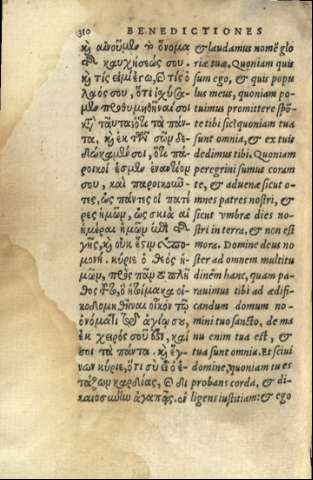 310 BENEDICTIONES
καὶ αἰνοῦμεν τὸ ὄνομα
τῆς καυχήσεώς σου.
καὶ τίς εἰμι ἐγω, καὶ τίς ὁ
λαός σου, ὅτι ἰσχύσα-
μεν προθυμηθῆναί σοι
ταῦτα; ὅτι τὰ πάν-
τα, καὶ ἐκ τῶν σῶν δε-
δώκαμέν σοι, ὅτι πά-
ροικοί ἐσμεν ἐναντίον
σου, καὶ παροικοῦν-
τες, ὡς πάντες οἱ πατέ
ρες ἡμῶν, ὡς σκιὰ αἱ
ἡμέραι ἡμῶν ἐπὶ τῆς
γῆς, καὶ οὐκ ἔστιν ὑπο-
μονή. κύριε ὁ θεὸς ἡ-
μῶν, πρὸς πᾶν τὸ πλῆ
θος τοῦτο, ὃ ἡτοίμακα οἰ-
κοδομηθῆναι οἶκον τῷ
ὀνόματι τῷ ἁγίῳ σου,
ἐκ χειρός σου ἐστι, καὶ
σοι τὰ πάντα. καὶ ἔγ-
νων κύριε, ὅτι σὺ εἶ ὁ ἐ-
τάζων καρδίας, καὶ δι
καιοσύνην ἀγαπᾷς.
& laudamus nomẽ glo
riæ tuæ. Quoniam quis
sum ego, & quis popu
lus meus, quoniam po-
tuimus promittere spõ-
te tibi sic? quoniam tua
sunt omnia, & ex tuis
dedimus tibi. Quoniam
peregrini sumus coram
te, & aduenæ sicut o-
mnes patres nostri, &
sicut vmbræ dies no-
stri in terra, & non est
mora. Domine deus no
ster ad omnem multitu
dinẽm hanc, quam pa-
rauimus tibi ad ædifi-
candum domum no-
mini tuo sancto, de ma
nu enim tua est, &
tua sunt omnia. Et sciui
domine, quoniam tu es
probans corda, & di-
ligens iustitiam: & ego